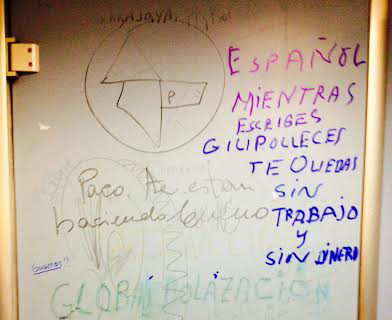 P
ESPAÑOL
MIENTRAS
ESCRIBES
GILIPOLLECES
TE QUEDAS
SIN
TRABAJO
Y
SIN DINERO
Paco. te estan
haciendo
GLOBALIZACIÓN